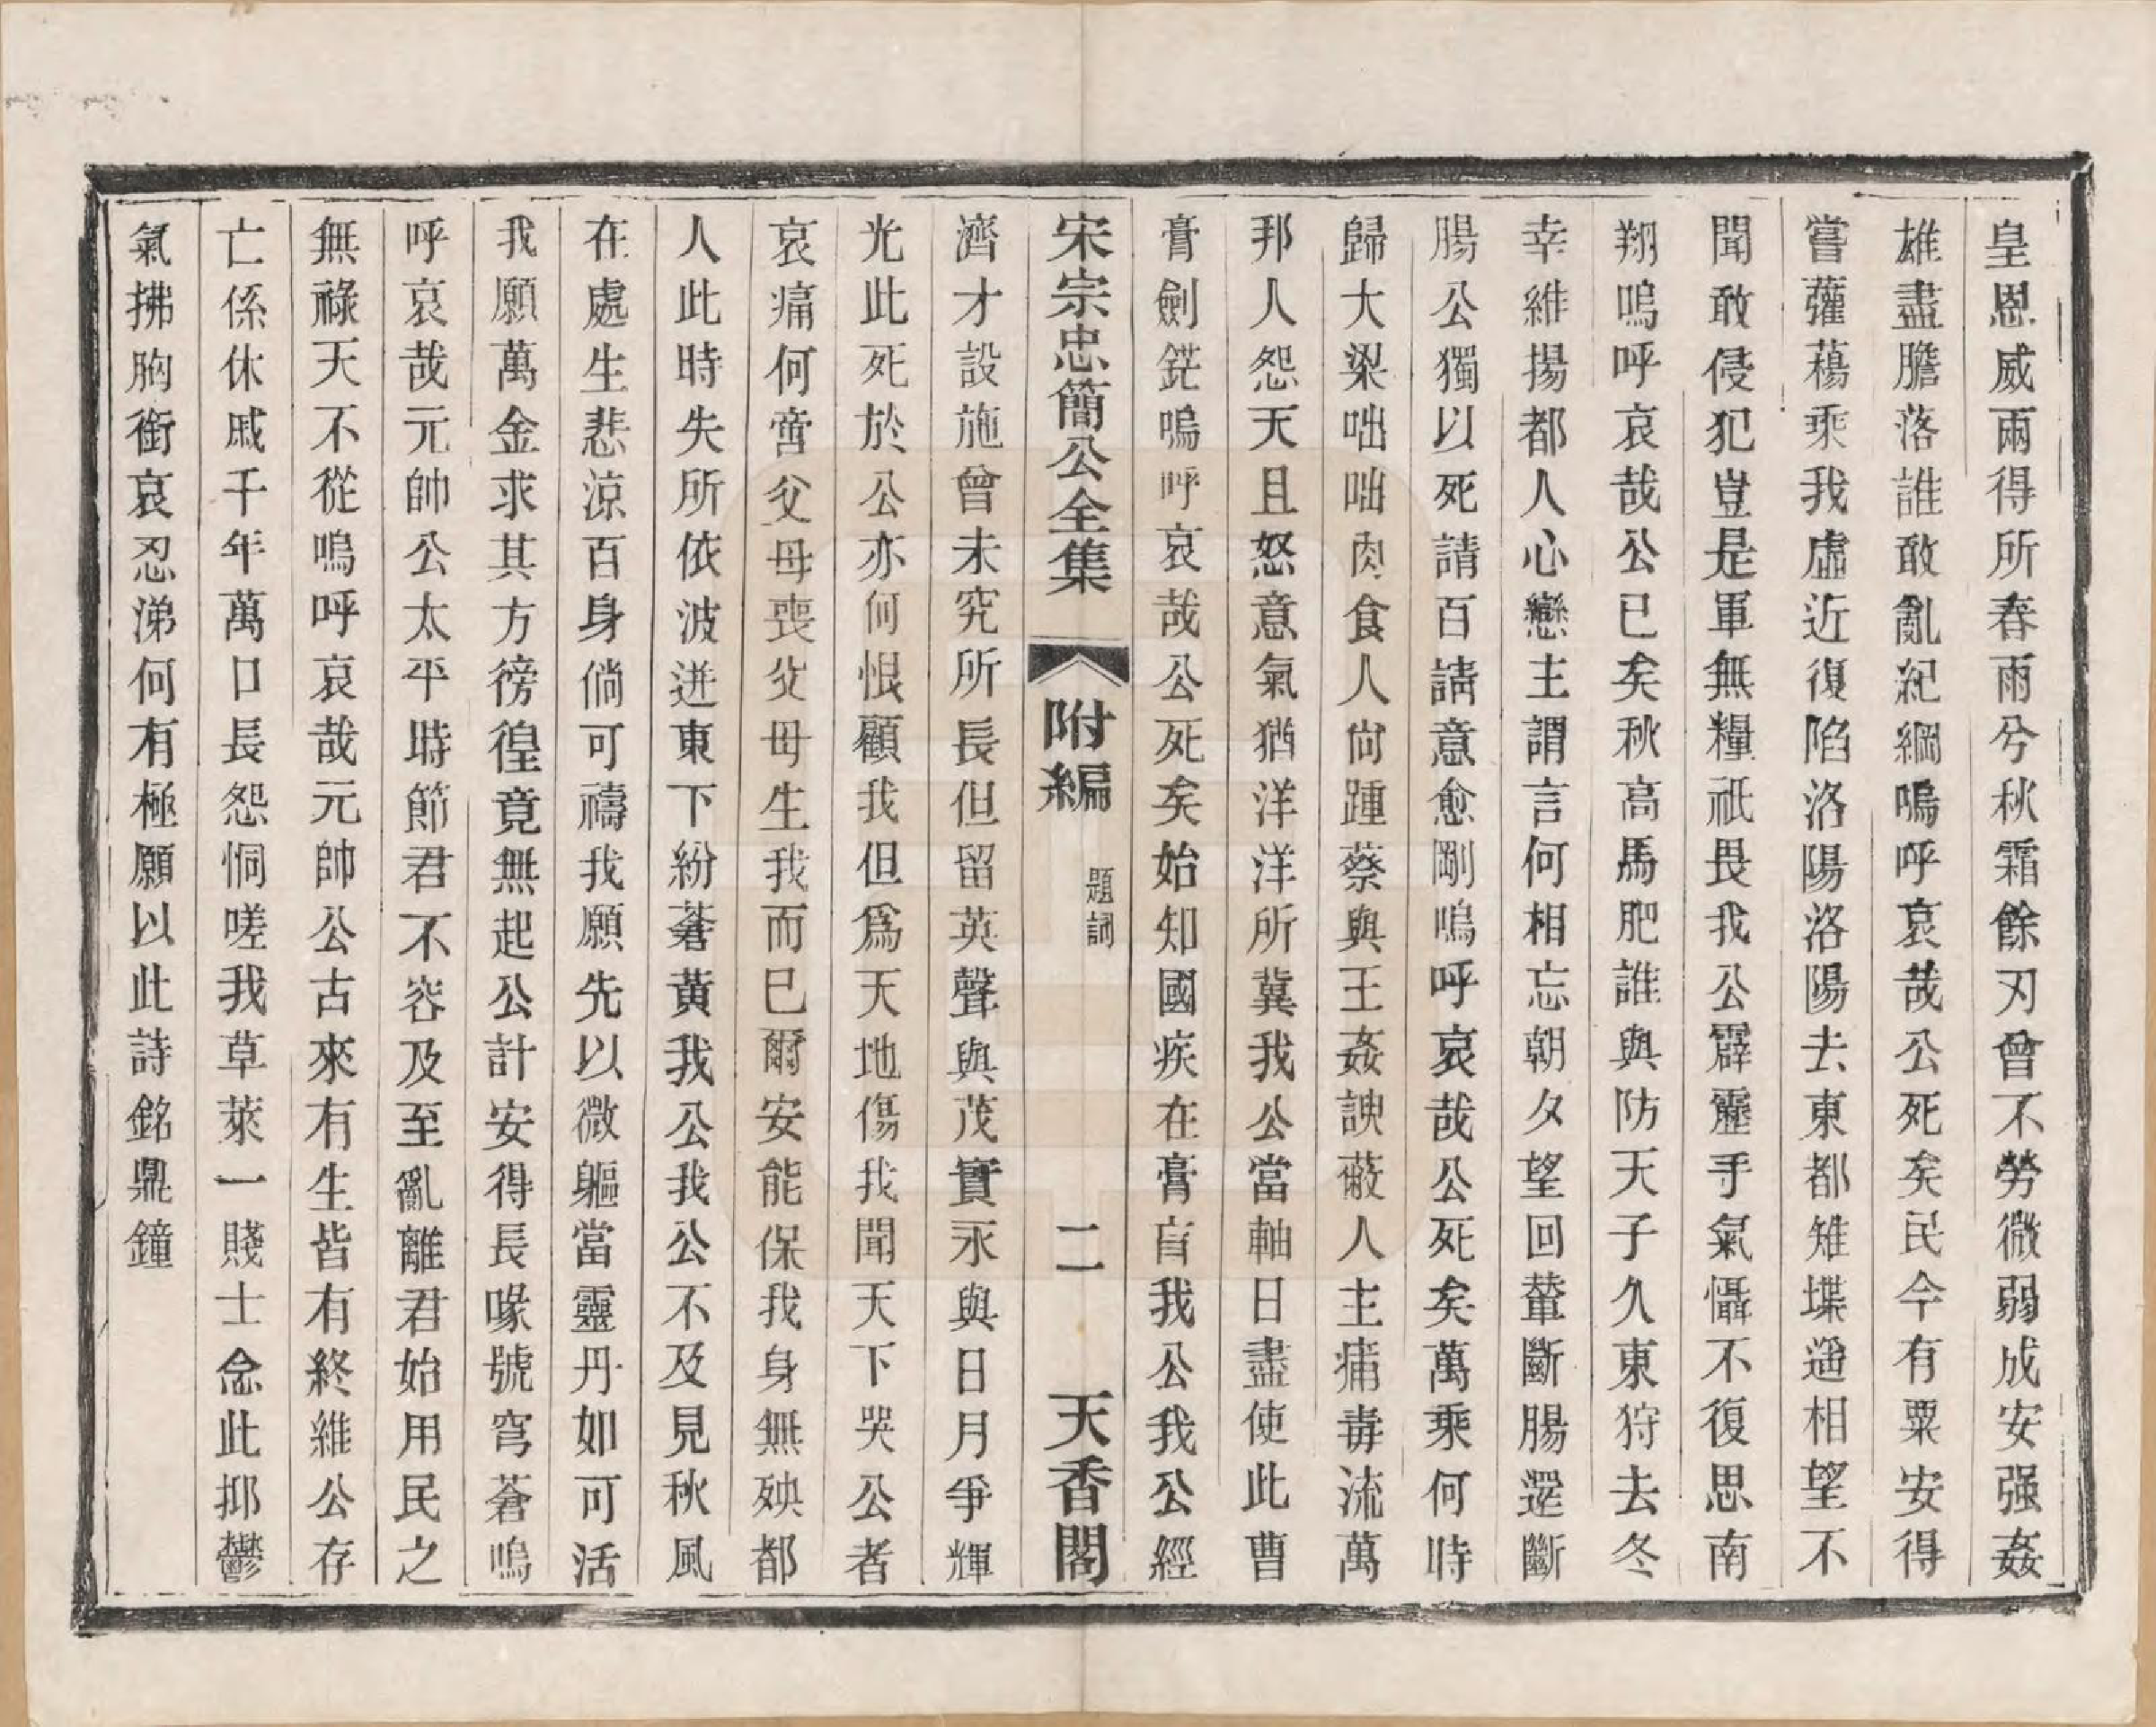 皇恩威兩得所春雨兮秋霜餘刃曾不勞微弱成安强姦
雄盡膽落誰敢亂紀綱嗚呼哀哉公死矣民今有粟安得
嘗虇蕮乘我虛近復陷洛陽洛陽去東都雉堞遥相望不
聞敢侵犯豈是軍無糧祇畏我公霹靂手氣懾不復思南
翔嗚呼哀哉公已矣秋高馬肥誰與防天子久東狩去冬
幸維揚都人心戀主謂言何相忘朝夕望回輦斷腸還斷
腸公獨以死請百請意愈剛嗚呼哀哉公死矣萬乘何時
歸大梁咄咄肉食人尙踵蔡與王姦諛蔽人主痡毒流萬
邦人怨天且怒意氣猶洋洋所冀我公當軸日盡使此曹
膏劍鋩嗚呼哀哉公死矣始知國疾在膏肓我公我公經
宋宗忠簡公全集 附編 題詞 二 天香閣
濟才設施曾未究所長但留英聲與茂實永與日月爭輝
光此死於公亦何恨顧我但爲天地傷我聞天下哭公者
哀痛何啻父母喪父母生我而已爾安能保我身無殃都
人此時失所依波迸東下紛蒼黃我公我公不及見秋風
在處生悲涼百身倘可禱我願先以微軀當靈丹如可活
我願萬金求其方徬徨竟無起公計安得長喙號穹蒼嗚
呼哀哉元帥公太平時節君不容及至亂離君始用民之
無祿天不從嗚呼哀哉元帥公古來有生皆有終維公存
亡係休戚千年萬口長怨恫嗟我草萊一賤士念此抑鬱
氣拂胸銜哀忍涕何有極願以此詩銘鼎鐘